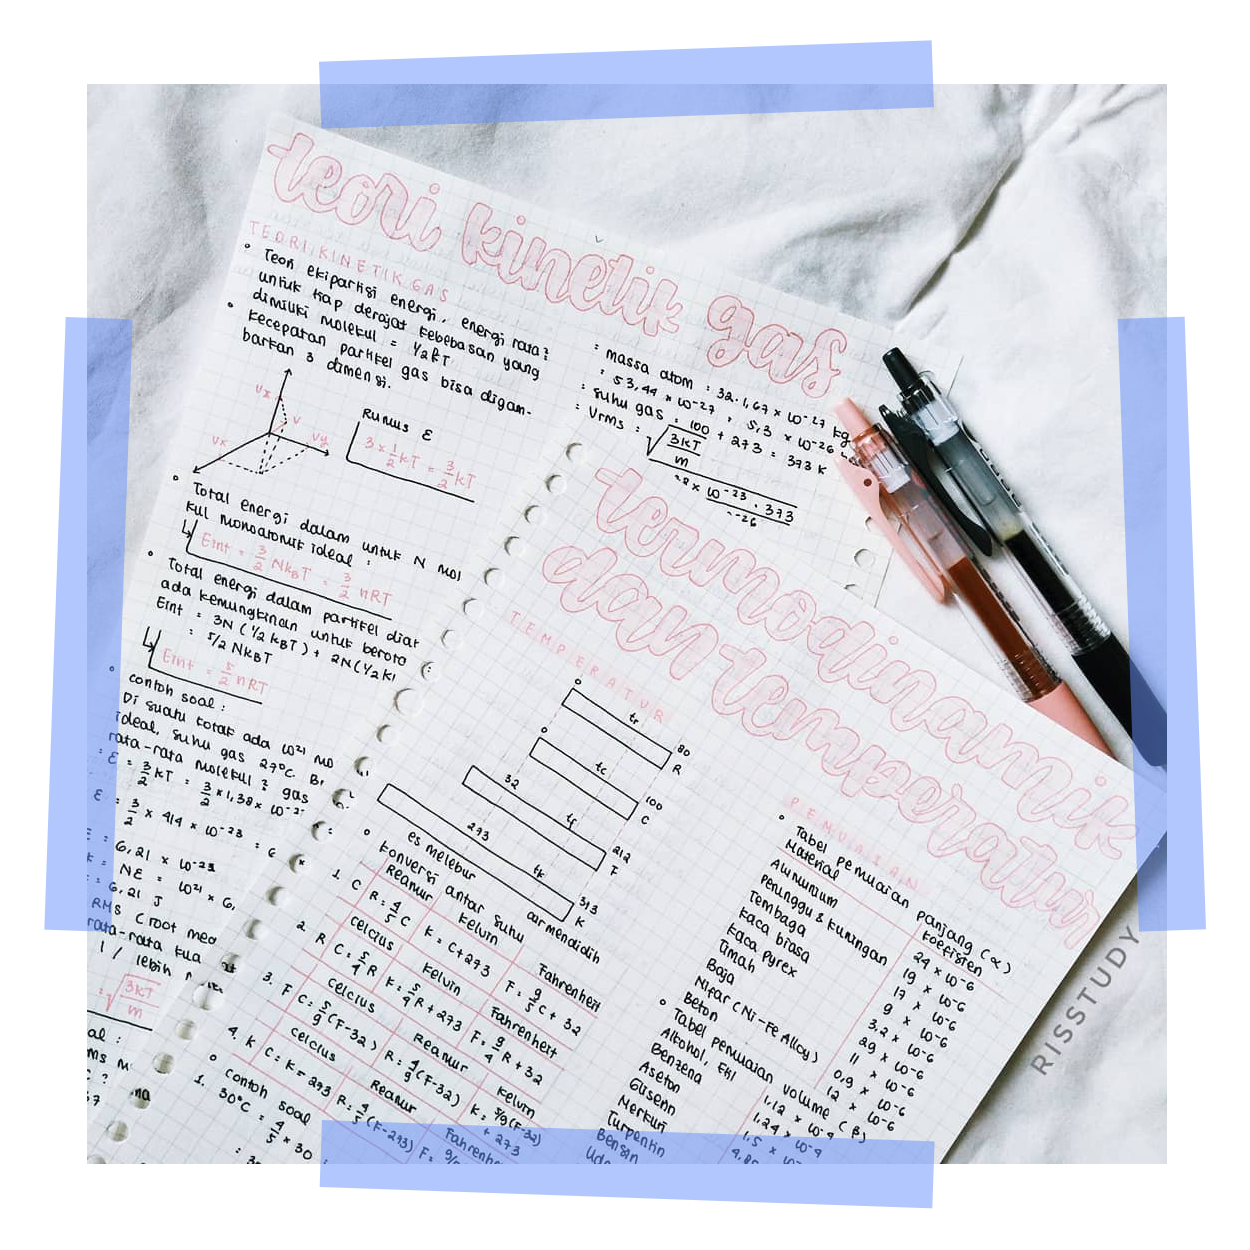 teori kinetik gas
TEORI KINETIK GAS
Teori ekipartisi energi, energi rata²
untuk tiap derajat kebebasan yang
dimiliki molekul = 1/2 kT
Kecepatan partikel gas bisa digam-
barkan 3 dimensi.
Vz
V
Vx
Vy
Rumus Ɛ
3 × 1/2 kT = 3/2 kT
Total energi dalam untuk N mol
kul monoatomik ideal :
Eint = 3/2 NkBT = 3/2 nRT
Total energi dalam partikel diat
ada kemungkinan untuk berota
Eint = 3N (1/2 kBT) + 2N (1/2 k
= 5/2 NkBT
Eint = 5/2 nRT
contoh soal :
Di suatu kotak ada 10²¹ mo
ideal, suhu gas 27°C. B
rata-rata molekul² gas
Ɛ = 3/2 kT = 3/2 × 1,38 × 10⁻²
Ɛ = 3/2 × 414 × 10⁻²³ = 6
= 6,21 × 10⁻²¹
NƐ = 10²¹ × 6,
= 6,21 J
RMS (root mea
rata-rata kua
1 / lebih
= √3kT/m
: massa atom : 32 . 1,67 × 10⁻²⁷ kg
: 53,44 × 10⁻²⁷ = 5,3 × 10⁻²⁶
: suhu gas : 100 + 273 = 373 K
: Vrms : √3kT/m
× 10⁻²³ . 373
⁻²⁶
termodinamik
dan temperatur
TEMPERATUR
0 tr 80 R
0 tc 100 C
32 tf 212 F
273 tk 373 K
es melebur
air mendidih
konversi antar suhu
1. C
Reamur
Kelvin
Fahrenheit
R = 4/5 C
K = C + 273
F = 9/5 C + 32
2. R
Celcius
Kelvin
Fahrenheit
C = 5/4 R
K = 5/4 R + 273
F = 9/4 R + 32
3. F
Celcius
Reamur
Kelvin
C = 5/9 (F-32)
R = 4/9 (F-32)
K = 5/9 (F-32) + 273
4. K
Celcius
Reamur
Fahrenhe
C = K - 273
R = 4/5 (K-273)
F = 9/
Contoh soal
1. 30°C = 4/5 × 30
PEMUAIAN
Tabel pemuaian panjang (α)
Material
Koefisien
Alumunium 24 × 10⁻⁶
Perunggu & Kuningan 19 × 10⁻⁶
Tembaga 17 × 10⁻⁶
Kaca biasa 9 × 10⁻⁶
Kaca pyrex 3,2 × 10⁻⁶
Timah 29 × 10⁻⁶
Baja 11 × 10⁻⁶
Nifar (Ni-Fe Alloy) 0,9 × 10⁻⁶
Beton 12 × 10⁻⁶
Tabel pemuaian volume (β)
Alkohol, Etil 1,12 × 10⁻⁴
Benzena 1,24 × 10⁻⁴
Aseton 1,5 × 10
Gliserin 4,85
Merkuri
Turpentin
Bensin
Uda
RISSTUDY